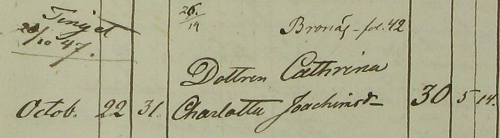 Tinget
20/10 47.
26/14
Bronäs fol. 42
Dottren Cathrina
Octob. 22 31. Charlotta Joachimsdr 30 5 14.